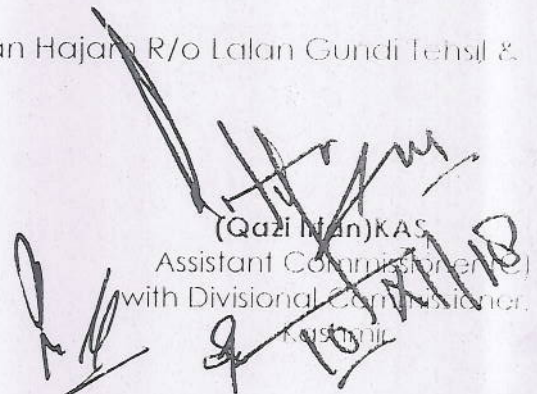 an Hajam R/o Lalan Gundi Tehsil &
(Qazi Irfan)KAS
Assistant Commissioner(C)
with Divisional Commissioner,
Kashmir
10/XII/18